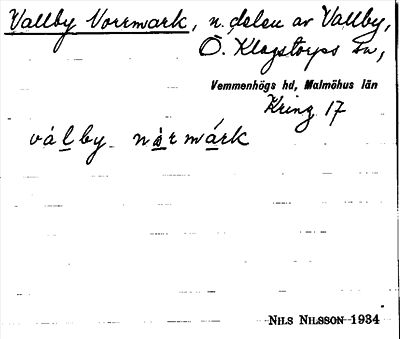 Vallby Norrmark, n. delen av Vallby,
Ö. Klagstorps sn,
Vemmenhögs hd, Malmöhus län
Kring 17
válby nàrmárk
NILS NILSSON 1934